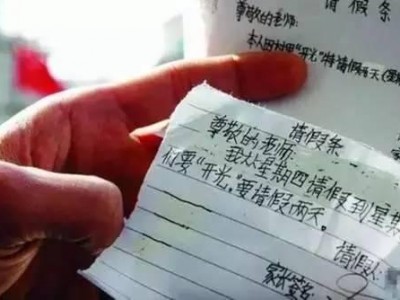 请假条
尊敬的老师:
本人因村里“开光”特请假两天
请假条
尊敬的老师:
我从星期四请假到星期
们要“开光”要请假两天。
请假人:
家长签名: